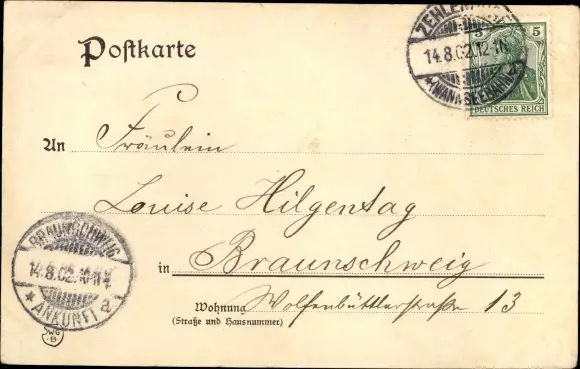 Postkarte
ZEHLENDORF
14.8.02.12-1N.
* (WANNSEEBAHN) a
5 5
DEUTSCHES REICH
An Fräulein
Louise Hilgentag
in Braunschweig
Wohnung Wolfenbüttlerstraße 13
(Straße und Hausnummer)
BRAUNSCHWEIG
14.8.02.
* ANKUNFT a
WG
B